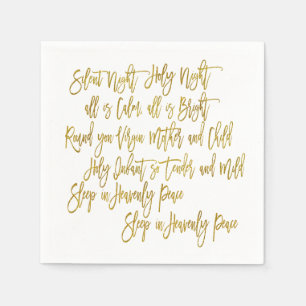 Silent Night Holy Night
all is Calm, all is Bright
Round you Virgin Mother and Child
Holy Infant so Tender and Mild
Sleep in Heavenly Peace
Sleep in Heavenly Peace